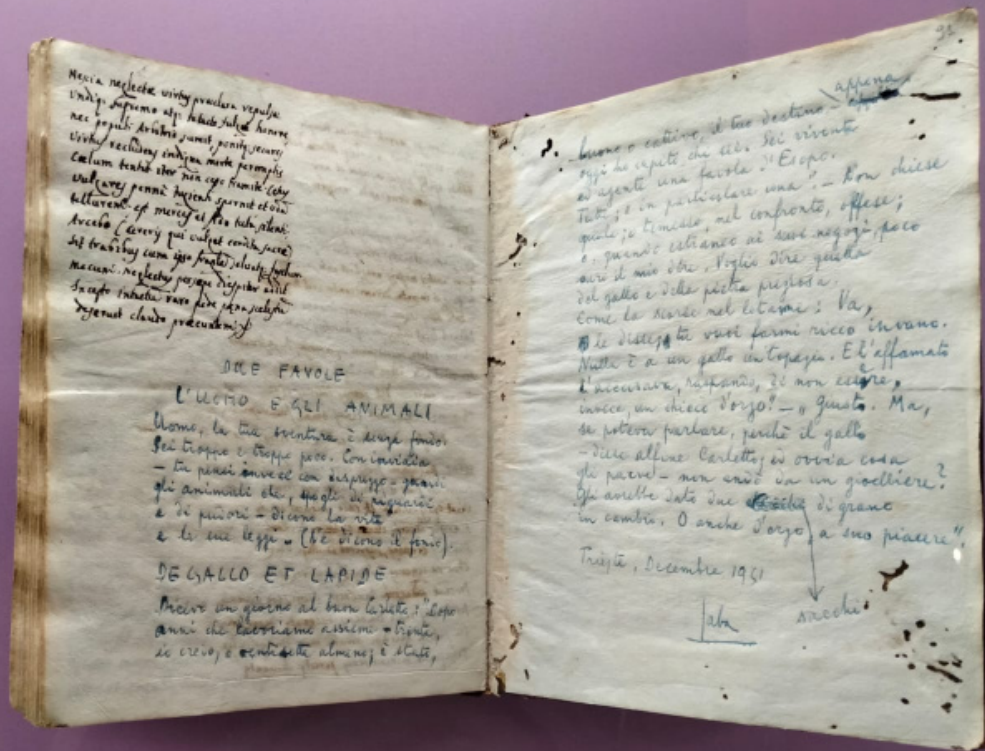 neglectae virtus praeclara repulsae
supremo
nec populi arbitrio sumit, ponitq; secures
virtus recludens indigna morte
Coelum tentat iter non
vulgares penna spernit et
tellurem. est merces et fido tuta silenti
Arcebo (Cereris qui vulget condita sacrae)
Sit trabibus cum ipso
neglectus
raro pede
deseruit claudo
DUE FAVOLE
L'UOMO E GLI ANIMALI
Uomo, la tua sventura è senza fondo.
Sei troppo e troppo poco. Con invidia
– tu pensi invece con disprezzo – guardi
gli animali che, spogli di riguardi
e di pudori – dicono la vita
e le sue leggi. – (Ne dicono il fondo).
DE GALLO ET LAPIDE
Dicevo un giorno al buon Carletto: "Dopo
anni che lavoriamo assieme – trenta,
io credo, o ventisette almeno; è stato,
appena
buono o cattivo, il tuo destino –
oggi ho capito che sia. Sei vivente
ed agente una favola d'Esopo.
Tutte; o in particolare una". – Non chiese
quale; o temesse, nel confronto, offese;
o, quando estraneo ai suoi negozi, poco
ami il mio dire. Voglio dire quella
del gallo e della pietra preziosa.
Come la scorse nel letamaio: Va,
le disse, tu vuoi farmi ricco invano.
Nulla è a un gallo un topazio. E l'affamato
l'accusava, raspando, di non essere,
invece, un chicco d'orzo" – "Giusto. Ma,
se poteva parlare, perché il gallo
– disse alfine Carletto; ed ovvia cosa
gli parve – non andò da un gioielliere?
Gli avrebbe dato due di grano
in cambio. O anche d'orzo, a suo piacere".
Trieste, Decembre 1951
sacchi
Saba